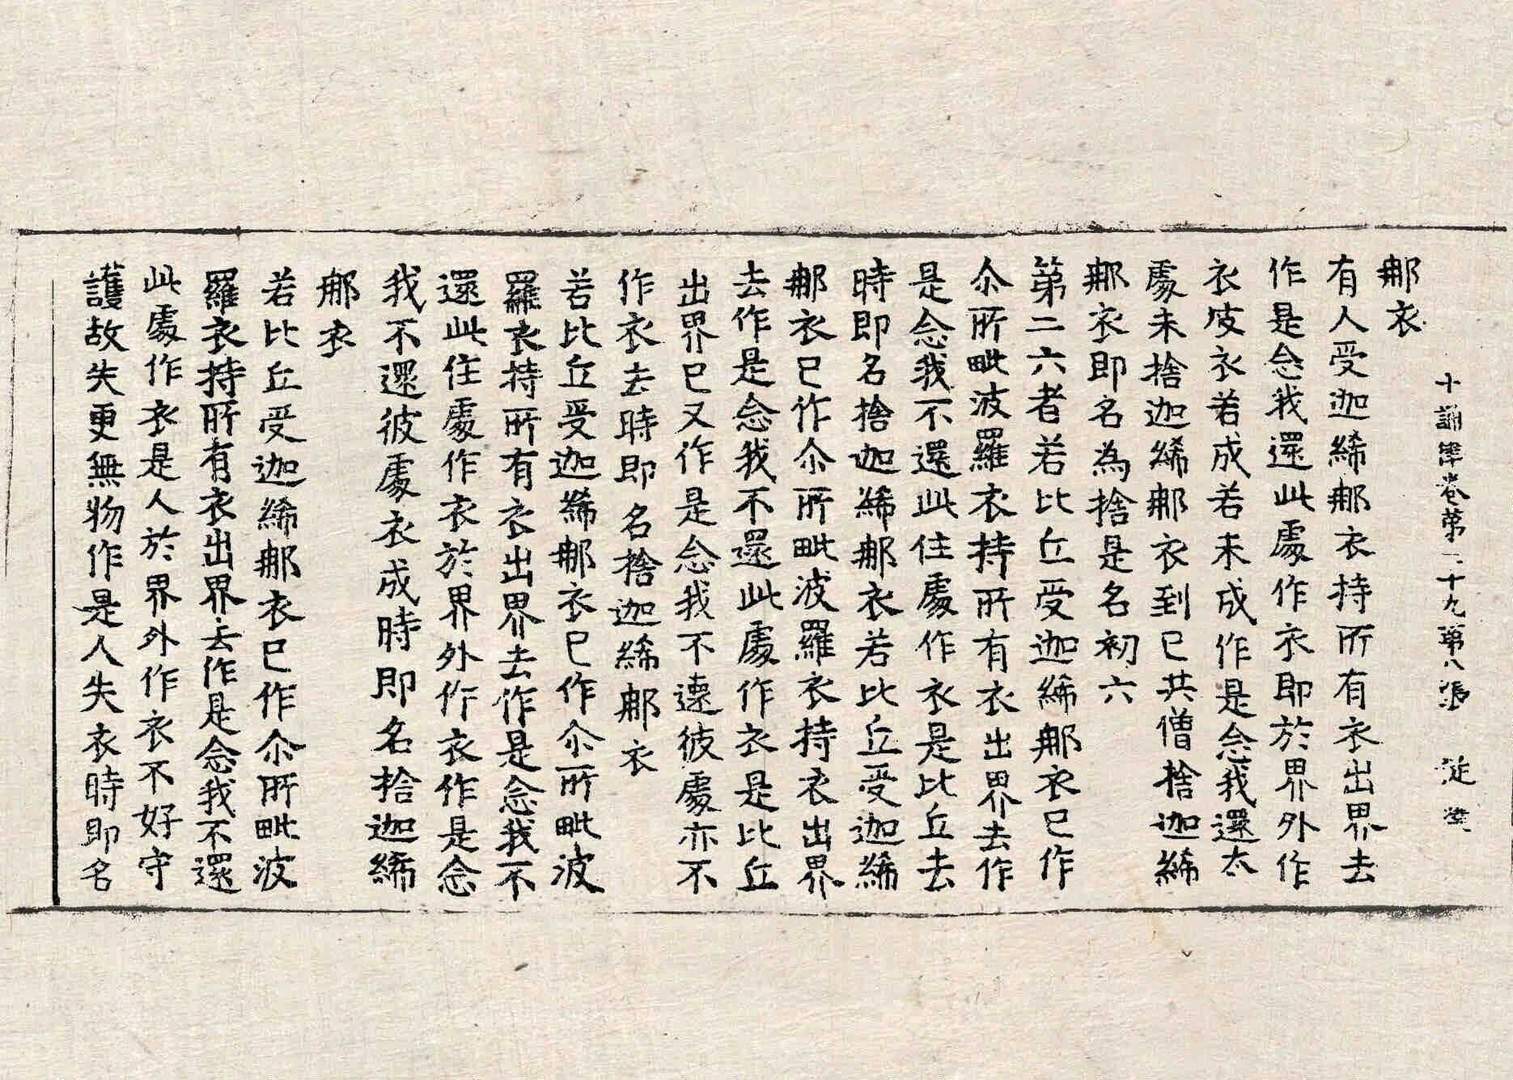 十誦律卷第二十九第八張
𨚗衣
有人受迦絺𨚗衣持所有衣出界去
作是念我還此處作衣即於界外作
衣皮衣若成若未成作是念我還太
處未捨迦絺𨚗衣到已共僧捨迦絺
𨚗衣即名為捨是名初六
第二六者若比丘受迦絺𨚗衣已作
尒所毗波羅衣持所有衣出界去作
是念我不還此住處作衣是比丘去
時即名捨迦絺𨚗衣若比丘受迦絺
𨚗衣已作尒所毗波羅衣持衣出界
去作是念我不還此處作衣是比丘
出界已又作是念我不遠彼處亦不
作衣去時即名捨迦絺𨚗衣
若比丘受迦絺𨚗衣已作尒所毗波
羅衣持所有衣出界去作是念我不
還此住處作衣於界外作衣作是念
我不還彼處衣成時即名捨迦絺
𨚗衣
若比丘受迦絺𨚗衣已作尒所毗波
羅衣持所有衣出界去作是念我不還
此處作衣是人於界外作衣不好守
護故失更無物作是人失衣時即名